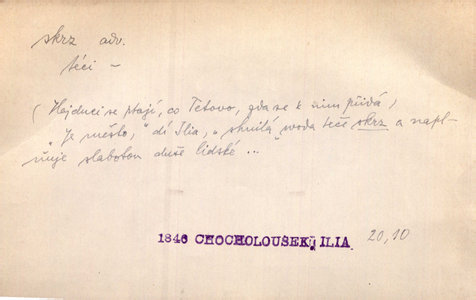 skrz adv.
téci –
(Hejduci se ptají, co Tetovo, zda se k nim přidá)
„Je město," dí Ilia, „shnilá voda teče skrz a napl-
ňuje slabotou duše lidské ...
1846 CHOCHOLOUŠEK, ILIA 20,10